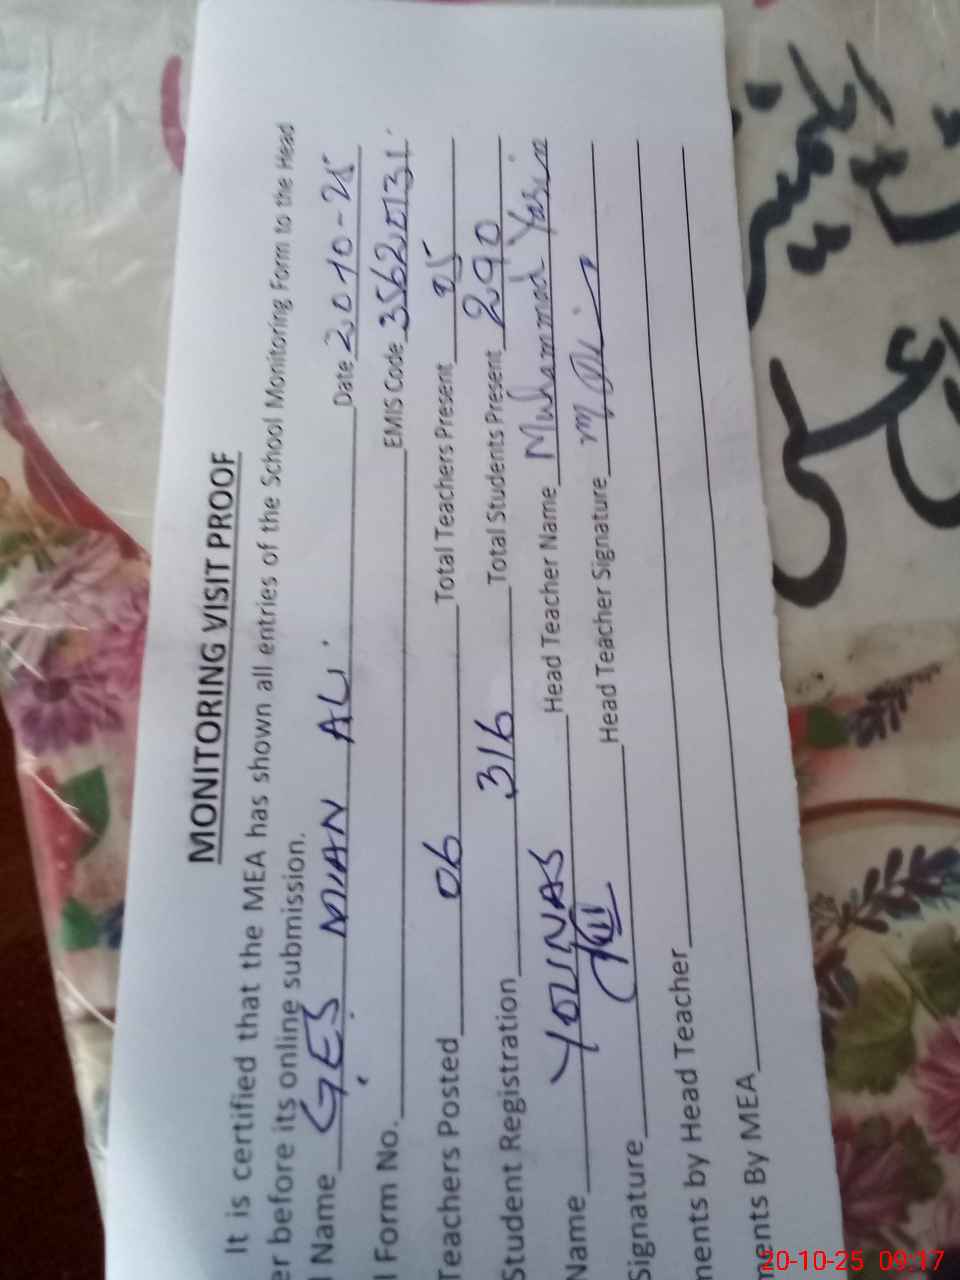 MONITORING VISIT PROOF
It is certified that the MEA has shown all entries of the School Monitoring Form to the Head
er before its online submission.
l Name GES MIAN ALI. Date 20-10-25
l Form No. EMIS Code 35620131
Teachers Posted 06 Total Teachers Present 05
Student Registration 316 Total Students Present 290
Name YOUNAS Head Teacher Name Muhammad Yasin
Signature Head Teacher Signature
ments by Head Teacher
ments By MEA
20-10-25 09:17